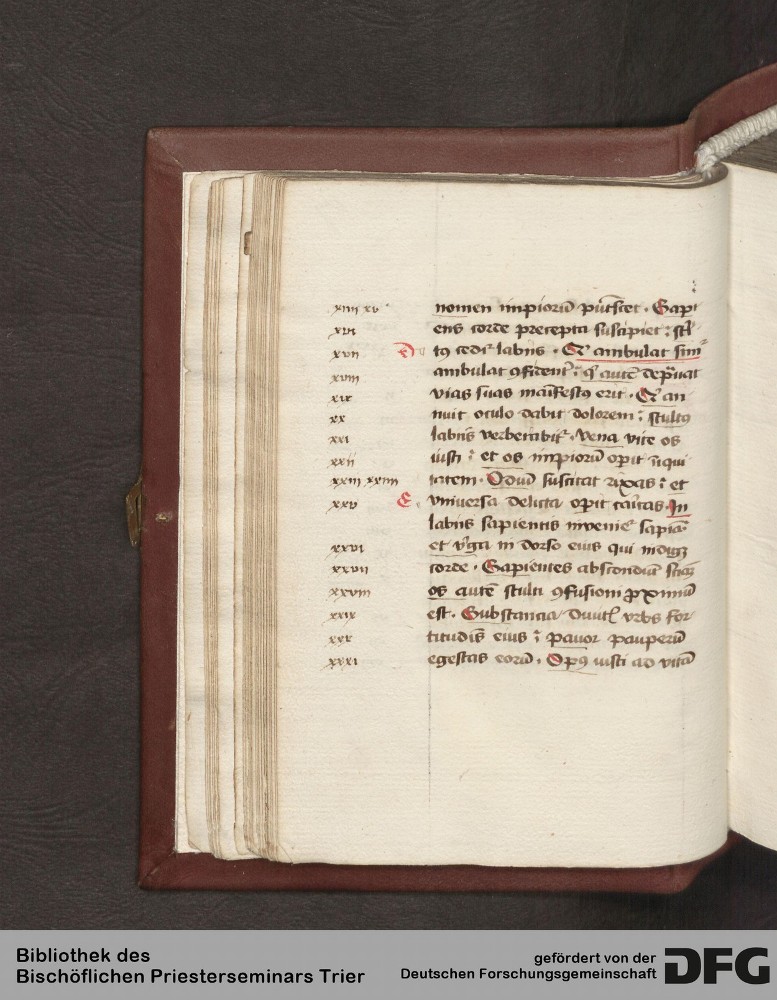 xiiii xv nomen impiorū putrescet . Sapi
xvi ens corde precepta suscipiet : stl
xvii D tꝯ cedit᷑ labiis . Qi ambulat sim
xviii ambulat ꝯfident᷑ : qi autē deprauat
xix vias suas maifestꝯ erit . Qi an
xx nuit oculo dabit dolorem : stultꝯ
xxi labiis verberabit᷑ . Vena vite os
xxii iusti : et os impiorū opit iiqui
xxiii xxiiii tatem . Odiuū suscitat rixas : et
xxv E vniuersa delicta opit caritas . In
labiis sapientis inuenit᷑ sapia
xxvi et virga in dorso eius qui indigꝫ
xxvii corde . Sapientes abscondūt sciaꝫ
xxviii os autē stulti ꝯfusioni proximū
xxix est . Substancia diuitꝭ vrbs for
xxx titudīs eius : pauor pauperū
xxxi egestas eorū . Opꝯ iusti ad vitā
Bibliothek des
Bischöflichen Priesterseminars Trier
gefördert von der
Deutschen Forschungsgemeinschaft
DFG